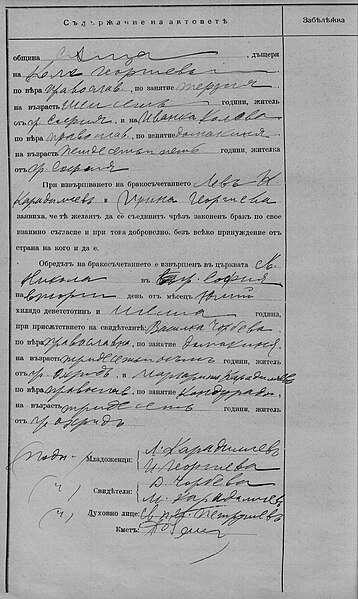 Съдържание на актоветѣ
Забѣлѣжка
община дъщеря
на Георгиевъ
по вѣра православ. , по занятие
на възрасть години, жител
отъ гр. София, и на Иванка
по вѣра православ , по занятие домакиня
на възрасть петдесетъ и петь години, жителка
отъ гр. София
При извършването на бракосъчетанието Левъ И
Карадимчевъ и Ирина Георгиева
заявиха, че тѣ желаят да се съединят чрѣз законен брак по свое
взаимно съгласие и при това доброволно, без всѣко принуждение от
страна на кого и да е.
Обредът на бракосъчетанието е извършен въ църквата Св.
Никола въ гр. София
на втори ден отъ мѣсец Юлий
хилядо деветстотин и шеста година,
при присѫтствието на свидѣтелитѣ: Василка Чорбева
по вѣра православна, по занятие домакиня
на възрасть тридесетъ и осемъ години, жител
отъ гр. Охридъ, и Карадимчевъ
по вѣра православ, по занятие Кондураджи
на възрасть тридесетъ години, жител
отъ гр. Охридъ
(подп. Младоженци: Л. Карадимчевъ
И. Георгиева
(ч) Свидѣтели: В. Чорбева
М. Карадимчев
(ч) Духовно лице:
Кметъ: